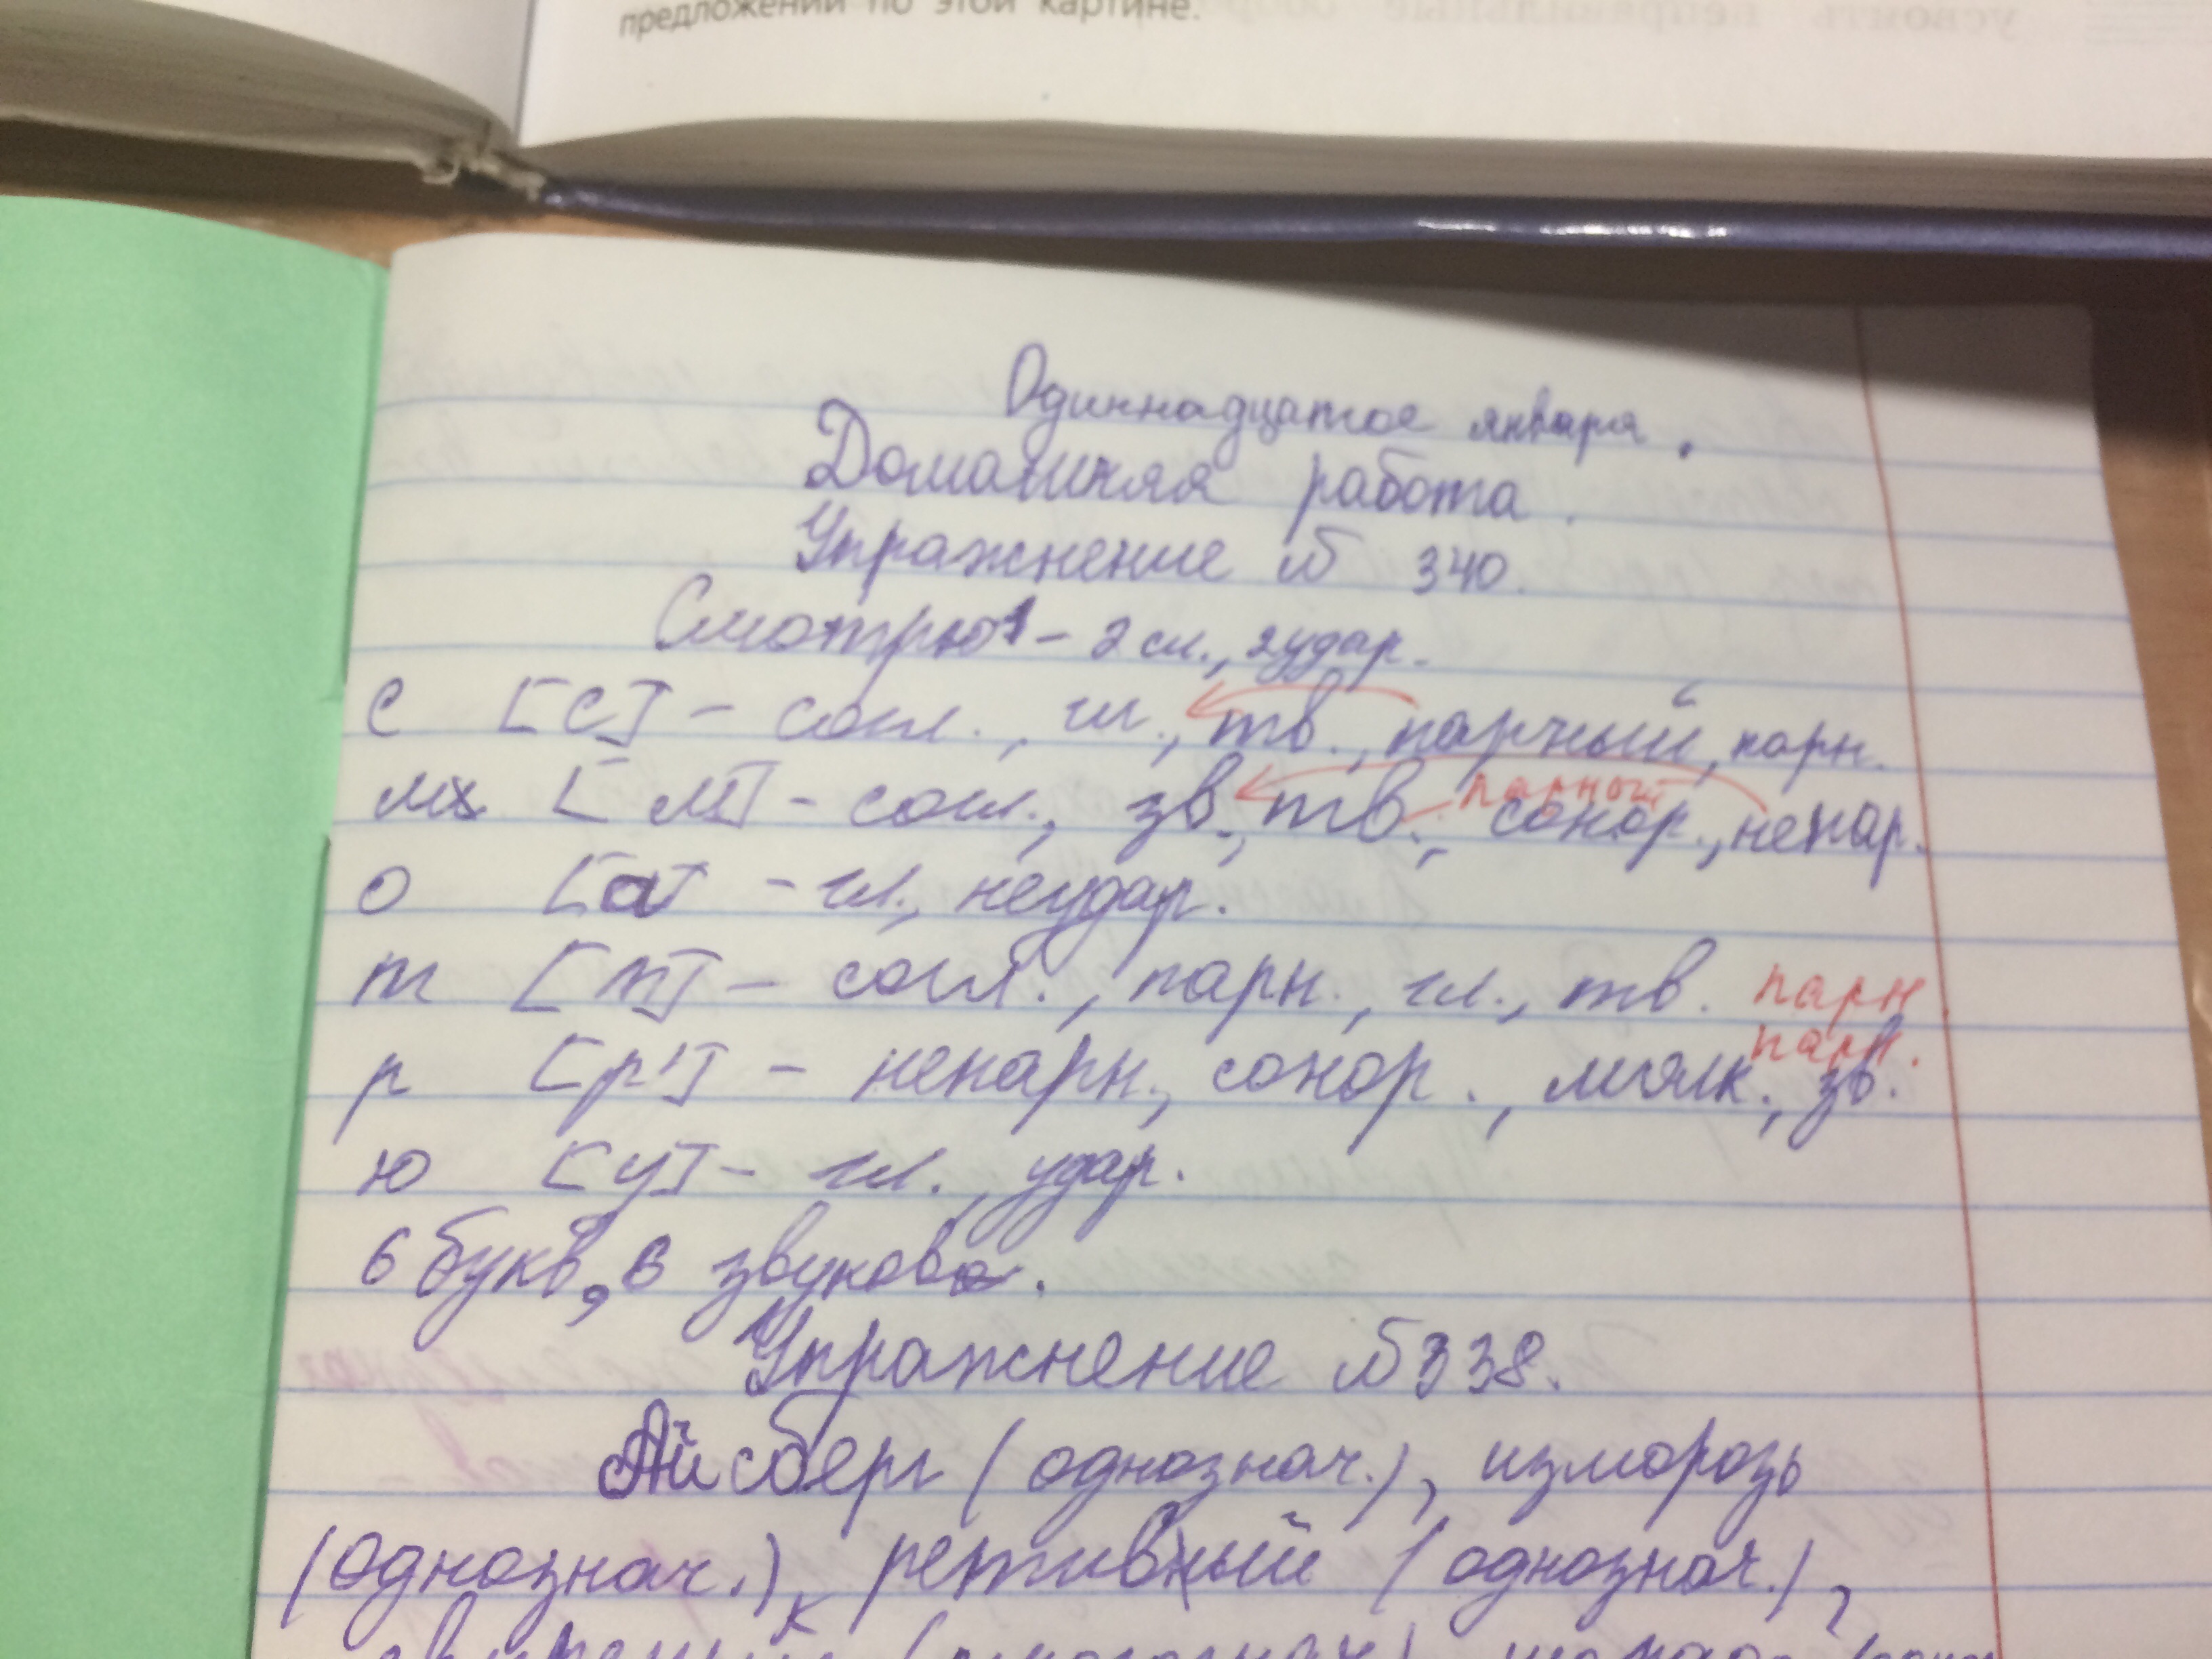 предложений по этой картине.
усвоить неправильные
Одиннадцатое января.
Домашняя работа.
Упражнение № 340.
Смотрю - 2 сл., 2 удар.
с [с] - согл., гл., тв., парный, парн.
м [м] - согл., зв., тв., сонор., непар.
парный
о [а] - гл., неудар.
т [т] - согл., парн., гл., тв. парн.
парн.
р [р'] - непарн., сонор., мягк., зв.
ю [у] - гл., удар.
6 букв, 6 звуков.
Упражнение № 338.
Айсберг (однознач.), изморозь
(однознач.), ретивый (однознач.),